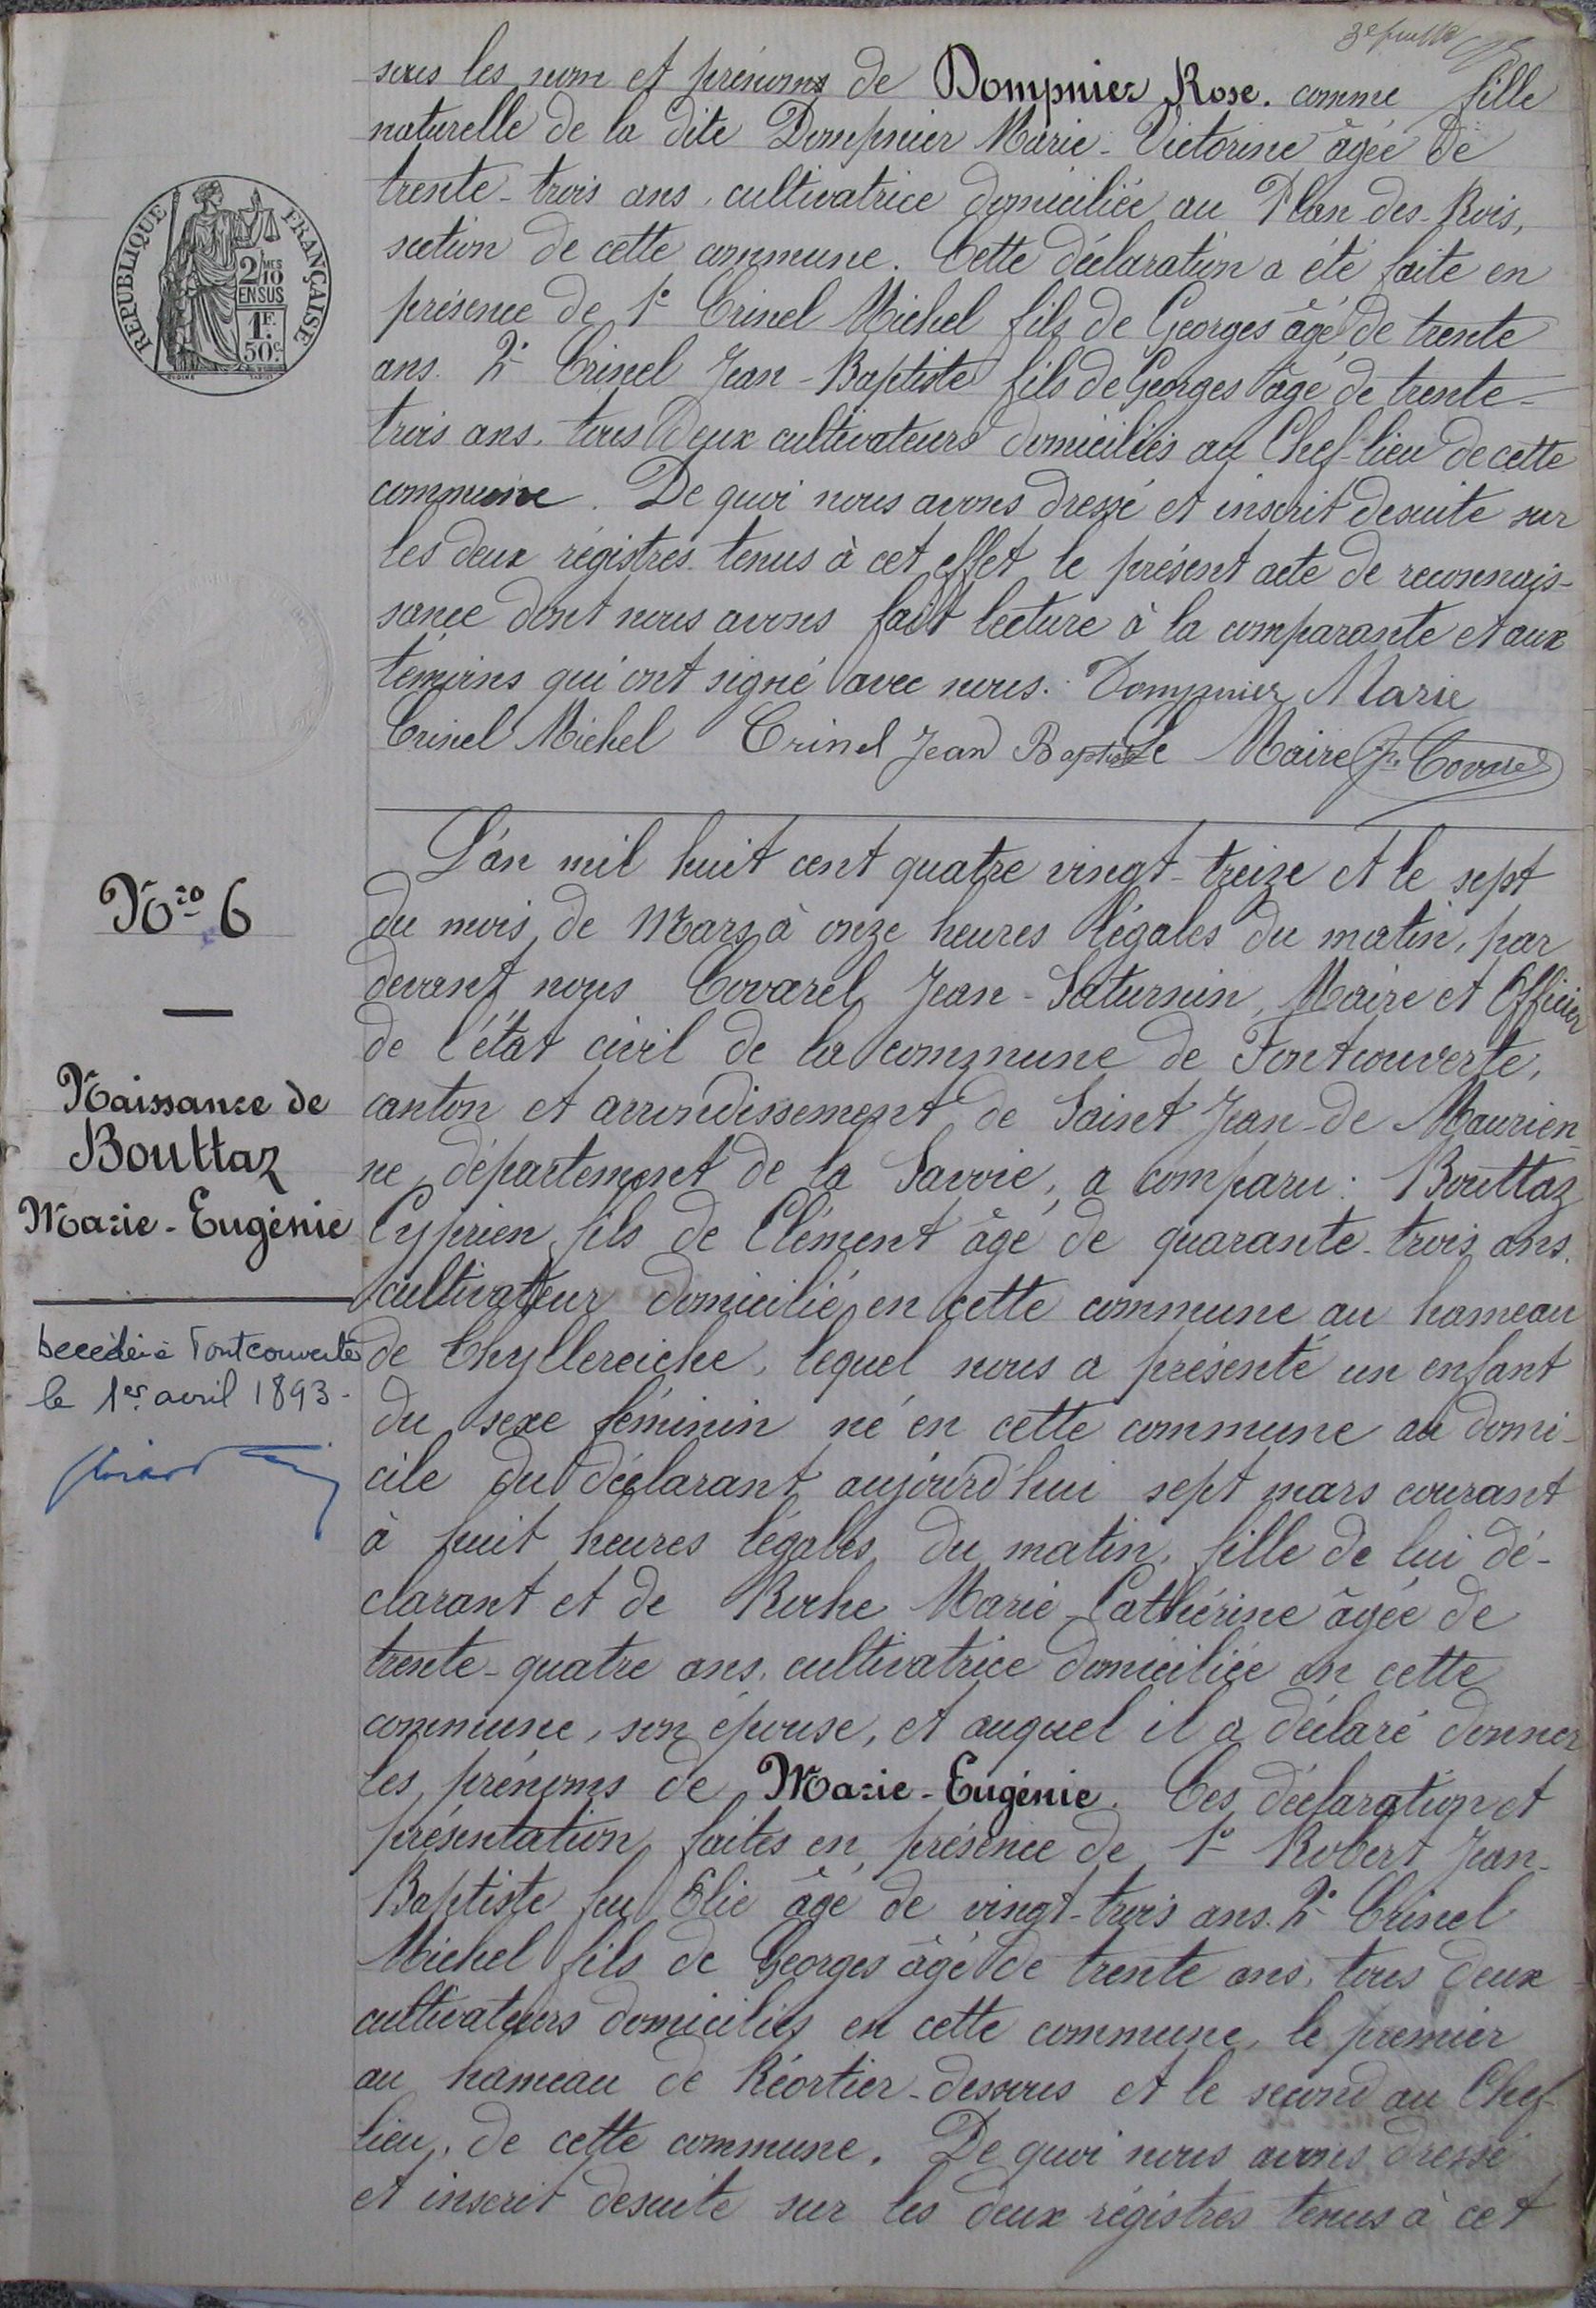 3e feuille
sous les nom et prénoms de Dompnier Rose. comme fille
naturelle de la dite Dompnier Marie-Victorine âgée de
trente-trois ans, cultivatrice domiciliée au Plan-des-Rois,
section de cette commune. Cette déclaration a été faite en
présence de 1° Crinel Michel fils de Georges âgé de trente
ans. 2° Crinel Jean-Baptiste fils de Georges âgé de trente-
trois ans. tous deux cultivateurs domiciliés au Chef-lieu de cette
commune. De quoi nous avons dressé et inscrit desuite sur
les deux régistres tenus à cet effet le présent acte de reconnais-
sance dont nous avons fait lecture à la comparante et aux
témoins qui ont signé avec nous. Dompnier Marie
Crinel Michel Crinel Jean Baptiste Le Maire Covarel
REPUBLIQUE FRANÇAISE
2/10 MES
EN SUS
1F.
50c.
L'an mil huit cent quatre vingt-treize et le sept
du mois de Mars à onze heures légales du matin, par
devant nous Covarel Jean-Saturnin, Maire et Officier
de l'état civil de la commune de Fontcouverte,
canton et arrondissement de Saint Jean-de Maurien-
ne, département de la Savoie, a comparu : Bouttaz
Cyprien fils de Clément âgé de quarante-trois ans.
cultivateur domicilié en cette commune au hameau
de Chyllereiche, lequel nous a présenté un enfant
du sexe féminin né en cette commune au domi-
cile du déclarant aujourd'hui sept mars courant
à huit heures légales du matin, fille de lui dé-
clarant et de Roche Marie-Cathérine âgée de
trente-quatre ans, cultivatrice domiciliée en cette
commune, son épouse, et auquel il a déclaré donner
les prénoms de Marie-Eugénie. Ces déclaration et
présentation faites en présence de 1° Robert Jean-
Baptiste feu Elie âgé de vingt-trois ans. 2° Crinel
Michel fils de Georges âgé de trente ans, tous deux
cultivateurs domiciliés en cette commune, le premier
au hameau de Réortier-dessous et le second au Chef-
lieu, de cette commune. De quoi nous avons dressé
et inscrit desuite sur les deux régistres tenus à cet
Nro 6
Naissance de
Bouttaz
Marie-Eugénie
Décédée à Fontcouverte
le 1er avril 1893-